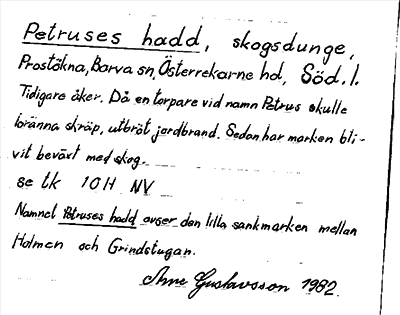 Petruses hadd, skogsdunge,
Prostökna, Barva sn, Österrekarne hd, Söd. l.
Tidigare åker. Då en torpare vid namn Petrus skulle
bränna skräp, utbröt jordbrand. Sedan har marken bli-
vit beväxt med skog.
se tk 10H NV
Namnet Petruses hadd avser den lilla sankmarken mellan
Holmen och Grindstugan.
Arne Gustavsson 1982.